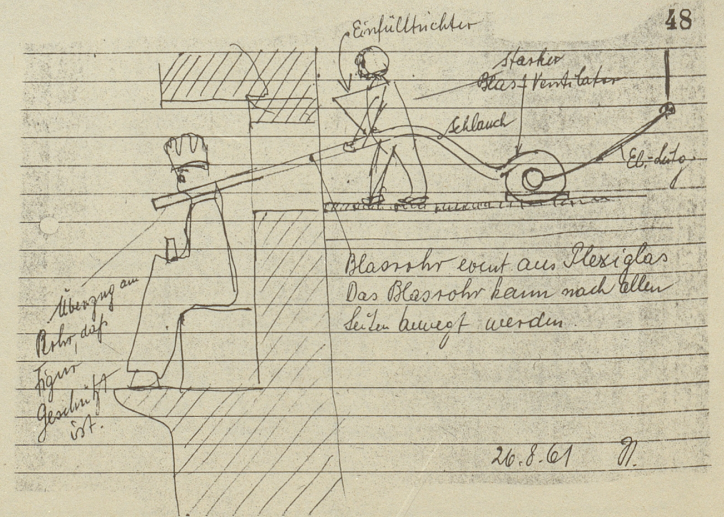 48
Einfülltrichter
Starker
Blas-Ventilator
Schlauch
El.-Leitg.
Blasrohr event aus Plexiglas
Das Blasrohr kann nach allen
Seiten bewegt werden.
Überzug am
Rohr, daß
Figur
Geschützt
ist.
26.8.61